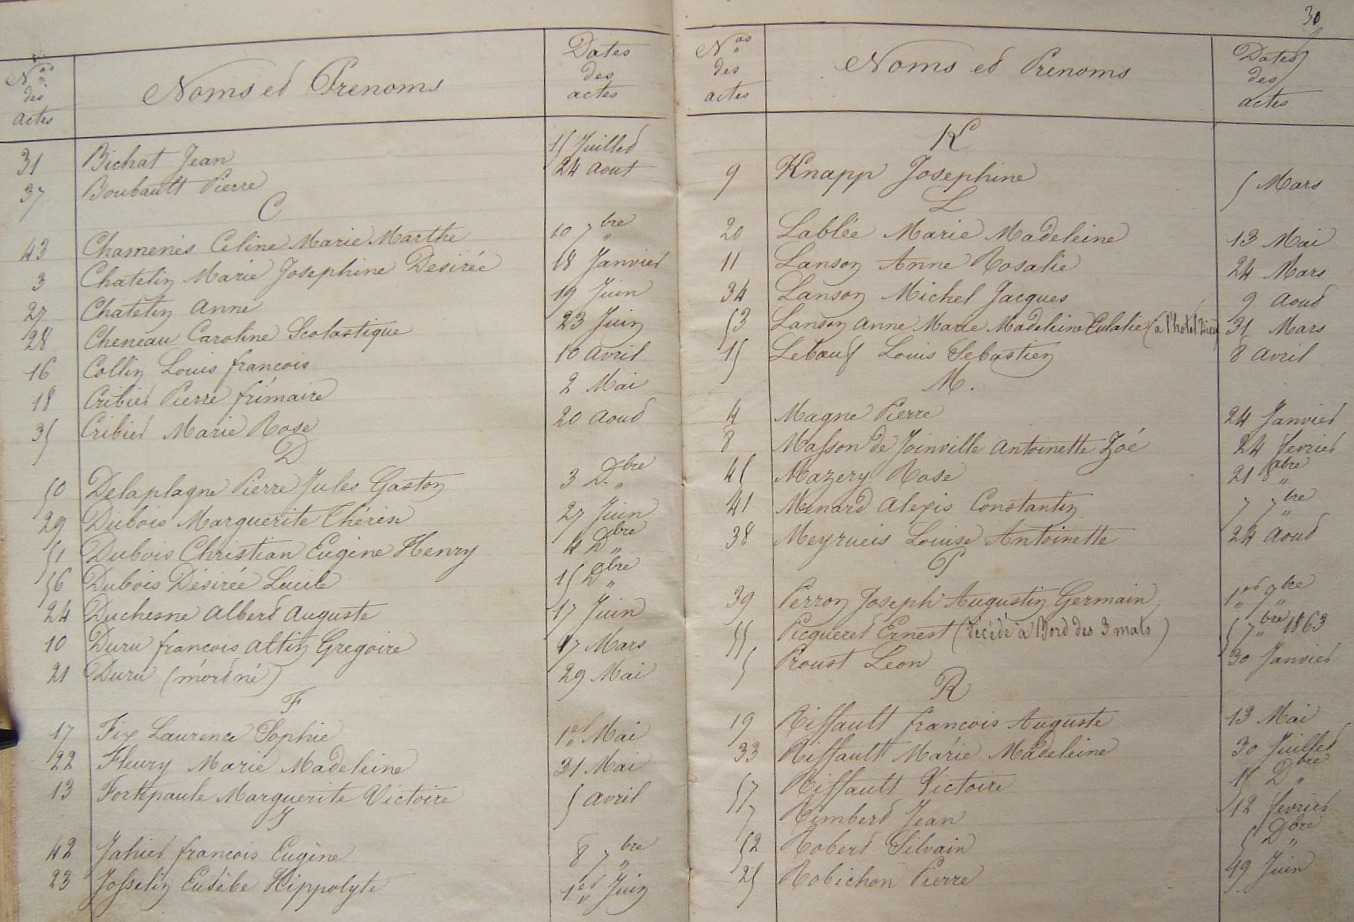 Nos des actes | Noms et Prenoms | Dates des actes
31 Bichat Jean 15 Juillet
37 Boubault Pierre 24 Aout
C
43 Chamenès Celine Marie Marthe 10 7bre
3 Chatelin Marie Josephine Desirée 18 Janvier
27 Chatelin Anne 19 Juin
28 Cheneau Caroline Scolastique 23 Juin
16 Collin Louis francois 10 avril
18 Cribier Pierre frimaire 2 Mai
35 Cribier Marie Rose 20 Aout
D
50 Delaplagne Pierre Jules Gaston 3 Dbre
29 Dubois Marguerite Thérèse 27 Juin
51 Dubois Christian Eugène Henry 4 Dbre
56 Dubois Désirée Lucile 15 Dbre
24 Duchesne Albert Auguste 17 Juin
10 Duru francois Altin Gregoire 17 Mars
21 Duru (mort né) 29 Mai
F
17 Fix Laurence Sophie 1er Mai
22 Fleury Marie Madeleine 31 Mai
13 Fortepaule Marguerite Victoire 5 avril
J
42 Jahier francois Eugène 8 7bre
23 Josselin Eusèbe Hippolyte 1er Juin
30
Nos des actes | Noms et Prenoms | Dates des actes
K
9 Knapp Josephine 5 Mars
L
20 Lablée Marie Madeleine 13 Mai
11 Lanson Anne Rosalie 24 Mars
34 Lanson Michel Jacques 9 Aout
53 Lanson Anne Marie Madeleine Eulalie (à l'hotel Dieu) 31 Mars
15 Lebeuf Louis Sebastien 8 avril
M.
4 Magne Pierre 24 Janvier
8 Masson de Joinville Antoinette Zoé 24 fevrier
45 Mazery Rose 21 8bre
41 Menard Alexis Constantin 7 7bre
38 Meyrueis Louise Antoinette 24 Aout
P
39 Perron Joseph Augustin Germain 1er 7bre
55 Picqueret Ernest (décédé à Bord des 3 mats) 5 7bre 1863
5 Proust Leon 30 Janvier
R
19 Riffault francois Auguste 13 Mai
33 Riffault Marie Madeleine 30 Juillet
57 Riffault Victoire 15 Dbre
7 Rimbert Jean 12 fevrier
52 Robert Silvain 5 Dbre
25 Robichon Pierre 19 Juin